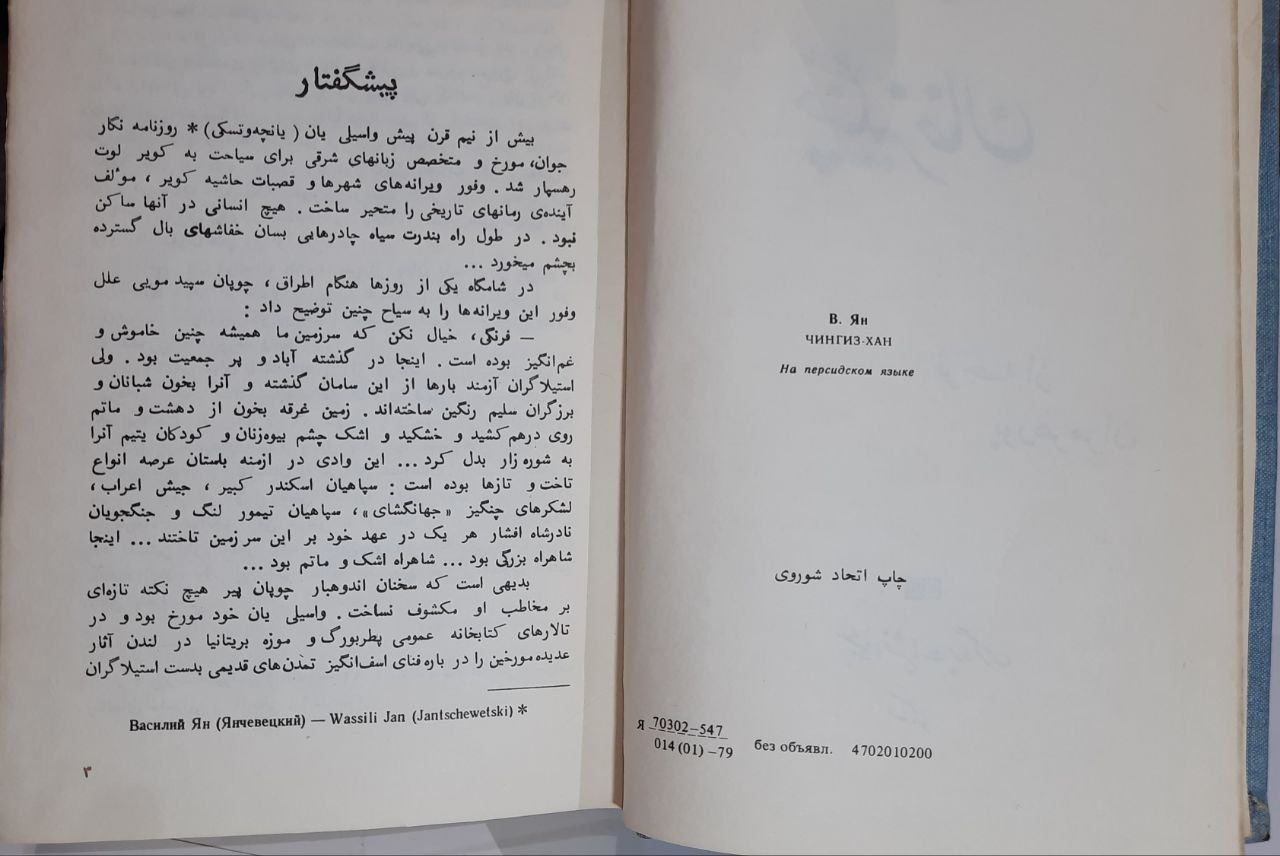 В. Ян
ЧИНГИЗ-ХАН
На персидском языке
چاپ اتحاد شوروی
Я 70302–547
014 (01) –79
без объявл. 4702010200
پیشگفتار
بیش از نیم قرن پیش واسیلی یان ( یانچه‌وتسکی ) * روزنامه نگار
جوان، مورخ و متخصص زبانهای شرقی برای سیاحت به کویر لوت
رهسپار شد . وفور ویرانه‌های شهرها و قصبات حاشیه کویر ، موٴلف
آینده‌ی رمانهای تاریخی را متحیر ساخت . هیچ انسانی در آنها ساکن
نبود . در طول راه بندرت سیاه چادرهایی بسان خفاشهای بال گسترده
بچشم میخورد ...
در شامگاه یکی از روزها هنگام اطراق ، چوپان سپید مویی علل
وفور این ویرانه‌ها را به سیاح چنین توضیح داد :
— فرنگی، خیال نکن که سرزمین ما همیشه چنین خاموش و
غم‌انگیز بوده است . اینجا در گذشته آباد و پر جمعیت بود . ولی
استیلاگران آزمند بارها از این سامان گذشته و آنرا بخون شبانان و
برزگران سلیم رنگین ساخته‌اند . زمین غرقه بخون از دهشت و ماتم
روی درهم کشید و خشکید و اشک چشم بیوه‌زنان و کودکان یتیم آنرا
به شوره زار بدل کرد ... این وادی در ازمنه باستان عرصه انواع
تاخت و تازها بوده است : سپاهیان اسکندر کبیر ، جیش اعراب ،
لشکرهای چنگیز «جهانگشای»، سپاهیان تیمور لنگ و جنگجویان
نادرشاه افشار هر یک در عهد خود بر این سرزمین تاختند ... اینجا
شاهراه بزرگی بود ... شاهراه اشک و ماتم بود ...
بدیهی است که سخنان اندوهبار چوپان پیر هیچ نکته تازه‌ای
بر مخاطب او مکشوف نساخت . واسیلی یان خود مورخ بود و در
تالارهای کتابخانه عمومی پطربورگ و موزه بریتانیا در لندن آثار
عدیده مورخین را در باره فنای اسف‌انگیز تمدن‌های قدیمی بدست استیلاگران
Василий Ян (Янчевецкий) — Wassili Jan (Jantschewetski) *
۳